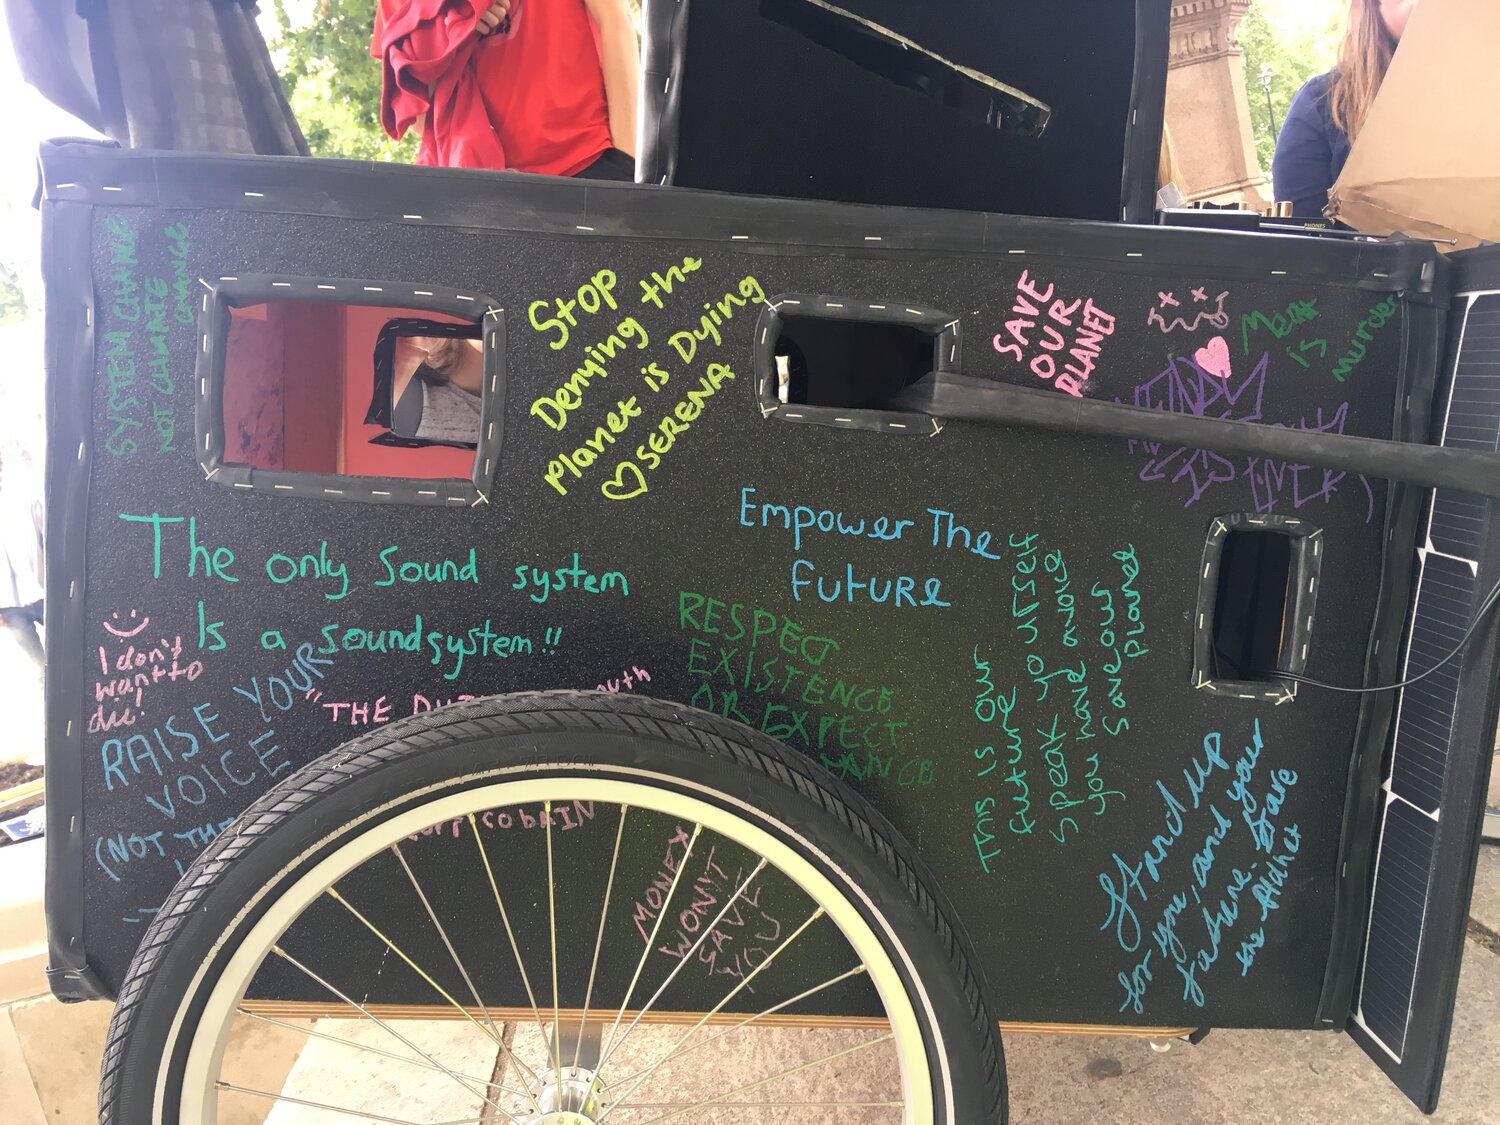 SYSTEM CHANGE
NOT CLIMATE
CHANGE
Stop
Denying the
Planet is Dying
♡ SERENA
SAVE
OUR
PLANET
Meat
is
murder
PHONES
The only Sound system
Is a soundsystem!!
Empower The
FUTURE
I don't
want to
die!
RAISE YOUR
VOICE
(NOT THE
"THE
uth
Cobain
RESPECT
EXISTENCE
OR EXPECT
MONEY
WON'T
SAVE
YOU
This is our
future
speak yourself
you have a voice
save our
planet
Stand up
for you, and your
future. Save
the planet